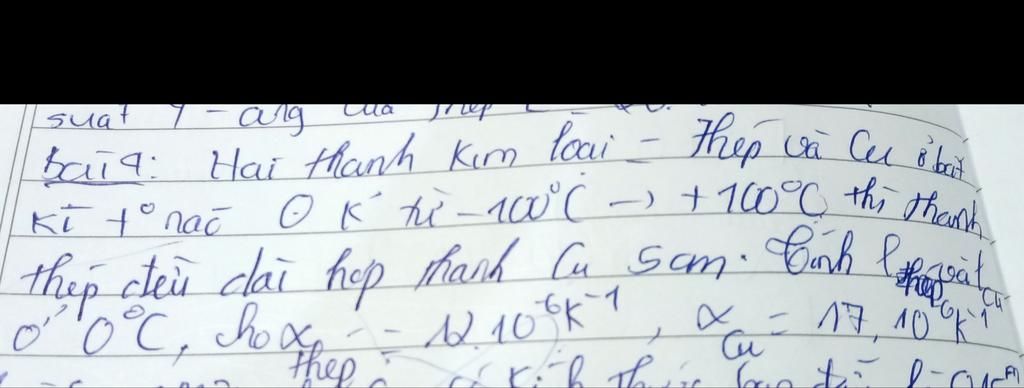 suất Y-âng của thép
bài 4: Hai thanh kim loại = Thép và Cu ở bất
kì t° nào ở K từ -100°C -> +100°C, thì thanh
thép đều dài hơp thanh Cu 5cm. Tính l thép và l Cu
ở 0°C, cho α thép = 12.10^-6 K^-1, α Cu = 17.10^-6 K^-1